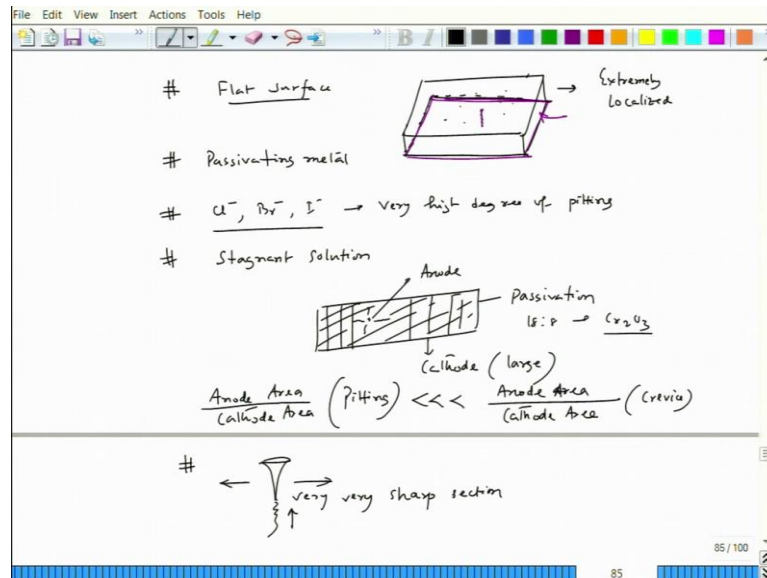 File Edit View Insert Actions Tools Help
# Flat surface
Extremely
Localized
# Passivating metal
# Cl⁻, Br⁻, I⁻ → Very high degree of pitting
# Stagnant Solution
Anode
Passivation
18:8 → Cr2O3
Cathode (large)
Anode Area / Cathode Area (Pitting) <<< Anode Area / Cathode Area (Crevice)
# very very sharp section
85 / 100
85